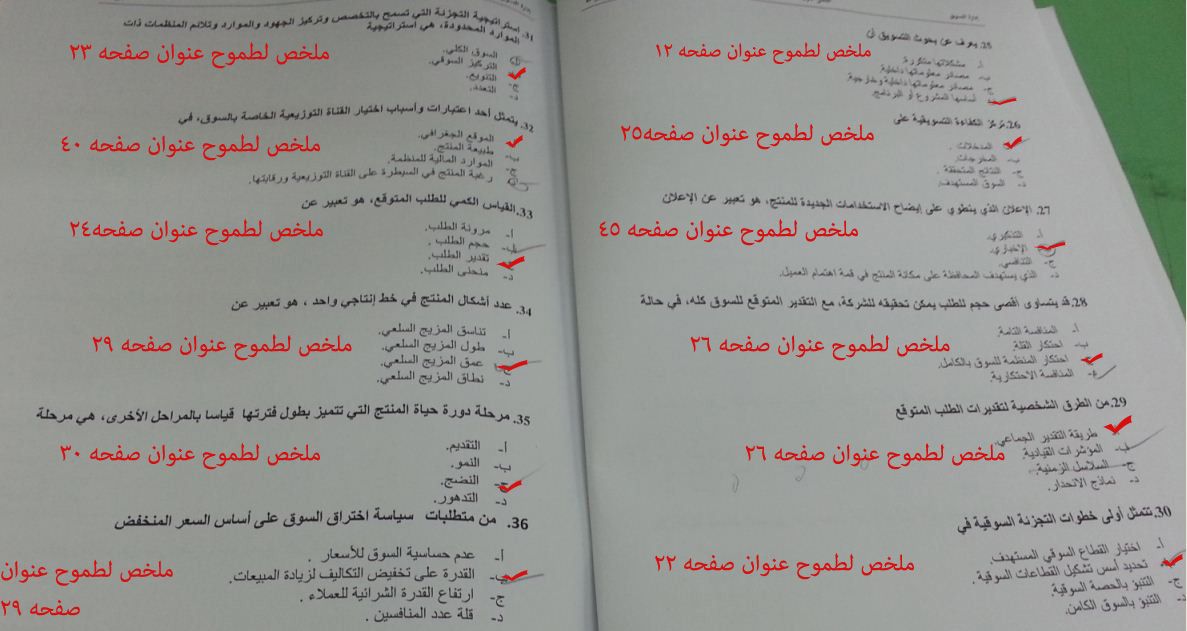 إدارة التسويق
25. يعرف عن بحوث التسويق أن
أ- مشكلاتها متكررة.
ب- مصادر معلوماتها داخلية.
ج- مصادر معلوماتها داخلية وخارجية.
د- أساسها المشروع أو البرنامج.
ملخص لطموح عنوان صفحه ١٢
26. تركز الكفاءة التسويقية على
أ- المدخلات.
ب- المخرجات.
ج- النتائج المتحققة.
د- السوق المستهدف.
ملخص لطموح عنوان صفحه٢٥
27. الإعلان الذي ينطوي على إيضاح الاستخدامات الجديدة للمنتج، هو تعبير عن الإعلان
أ- التذكيري.
ب- الإخباري.
ج- التنافسي.
د- الذي يستهدف المحافظة على مكانة المنتج في قمة اهتمام العميل.
ملخص لطموح عنوان صفحه ٤٥
28. قد يتساوى أقصى حجم للطلب يمكن تحقيقه للشركة، مع التقدير المتوقع للسوق كله، في حالة
أ- المنافسة التامة.
ب- احتكار القلة.
ج- احتكار المنظمة للسوق بالكامل.
د- المنافسة الاحتكارية.
ملخص لطموح عنوان صفحه ٢٦
29. من الطرق الشخصية لتقديرات الطلب المتوقع
أ- طريقة التقدير الجماعي.
ب- المؤشرات القيادية.
ج- السلاسل الزمنية.
د- نماذج الانحدار.
ملخص لطموح عنوان صفحه ٢٦
30. تتمثل أولى خطوات التجزئة السوقية في
أ- اختيار القطاع السوقي المستهدف.
ب- تحديد أسس تشكيل القطاعات السوقية.
ج- التنبؤ بالحصة السوقية.
د- التنبؤ بالسوق الكامن.
ملخص لطموح عنوان صفحه ٢٢
31. إستراتيجية التجزئة التي تسمح بالتخصص وتركيز الجهود والموارد وتلائم المنظمات ذات
الموارد المحدودة، هي استراتيجية
أ- السوق الكلي.
ب- التركيز السوقي.
ج- التنويع.
د- التعدد.
ملخص لطموح عنوان صفحه ٢٣
32. يتمثل أحد اعتبارات وأسباب اختيار القناة التوزيعية الخاصة بالسوق، في
أ- الموقع الجغرافي.
ب- طبيعة المنتج.
ج- الموارد المالية للمنظمة.
د- رغبة المنتج في السيطرة على القناة التوزيعية ورقابتها.
ملخص لطموح عنوان صفحه ٤٠
33. القياس الكمي للطلب المتوقع، هو تعبير عن
أ- مرونة الطلب.
ب- حجم الطلب .
ج- تقدير الطلب.
د- منحنى الطلب.
ملخص لطموح عنوان صفحه٢٤
34. عدد أشكال المنتج في خط إنتاجي واحد ، هو تعبير عن
أ- تناسق المزيج السلعي.
ب- طول المزيج السلعي.
ج- عمق المزيج السلعي.
د- نطاق المزيج السلعي.
ملخص لطموح عنوان صفحه ٢٩
35. مرحلة دورة حياة المنتج التي تتميز بطول فترتها قياسا بالمراحل الأخرى، هي مرحلة
أ- التقديم.
ب- النمو.
ج- النضج.
د- التدهور.
ملخص لطموح عنوان صفحه ٣٠
36. من متطلبات سياسة اختراق السوق على أساس السعر المنخفض
أ- عدم حساسية السوق للأسعار .
ب- القدرة على تخفيض التكاليف لزيادة المبيعات.
ج- ارتفاع القدرة الشرائية للعملاء .
د- قلة عدد المنافسين .
ملخص لطموح عنوان
صفحه ٢٩